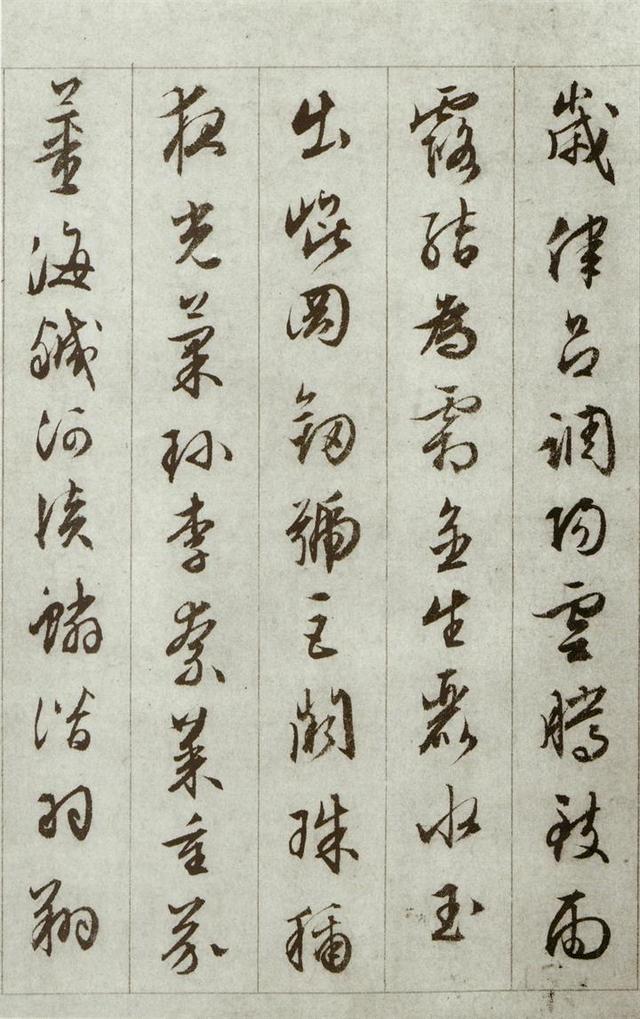 歲律呂調陽雲騰致雨
露結為霜金生麗水玉
出崐岡劔號巨闕珠稱
夜光菓珎李柰菜重芥
薑海鹹河淡鱗潛羽翔